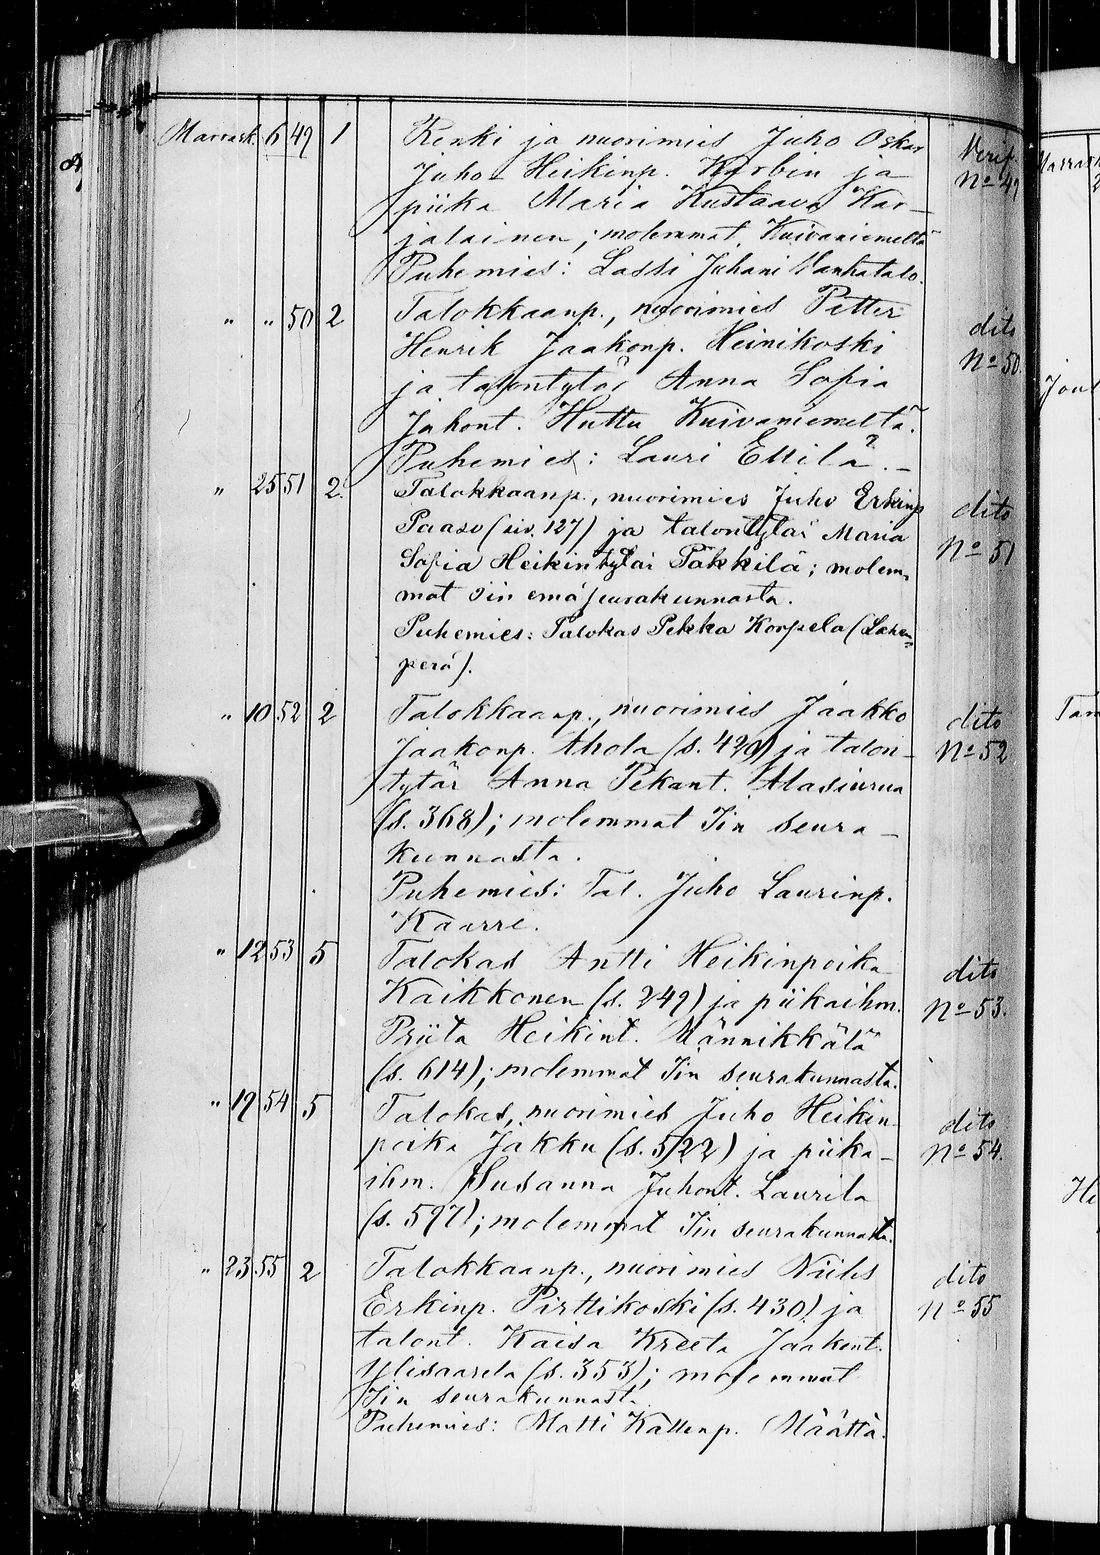 Marrask. 6 49 1 Renki ja nuorimies Juho Oskar Verif.
Juho Heikinp. Karbin ja No 49
piika Maria Kustaava Kar-
jalainen; molemmat Kuivaniemeltä
Puhemies: Lassi Juhani Vanhatalo.
" " 50 2 Talokkaanp., nuorimies Petter dito
Henrik Jaakonp. Heinikoski No 50.
ja talontytär Anna Sofia
Juhont. Huttu Kuivaniemeltä.
Puhemies: Lauri Ellilä. –
" 25 51 2. Talokkaanp., nuorimies Juho Erkinp. dito
Paaso (siv. 127) ja talontytär Maria No 51
Sofia Heikintytär Päkkilä; molem-
mat Iin emäseurakunnasta.
Puhemies: Talokas Pekka Korpela (Lehen-
perä).
" 10 52 2 Talokkaanp., nuorimies Jaakko dito
Jaakonp. Ahola (s. 420) ja talon- No 52
tytär Anna Pekant. Alasiurua
(s. 368); molemmat Iin seura-
kunnasta.
Puhemies: Tal. Juho Laurinp.
Kaarre.
" 12 53 5 Talokas Antti Heikinpoika dito
Kaikkonen (s. 249) ja piikaihm. No 53.
Priita Heikint. Männikkälä
(s. 614); molemmat Iin seurakunnasta.
" 19 54 5 Talokas, nuorimies Juho Heikin- dito
poika Jakku (s. 522) ja piika- No 54.
ihm. Susanna Juhont. Laurila
(s. 597); molemmat Iin seurakunnasta.
" 23 55 2 Talokkaanp., nuorimies Niiles dito
Erkinp. Pirttikoski (s. 430) ja No 55
talont. Kaisa Kreeta Jaakont.
Ylisaarela (s. 353); molemmat
Iin seurakunnasta
Puhemies: Matti Kallenp. Määttä.